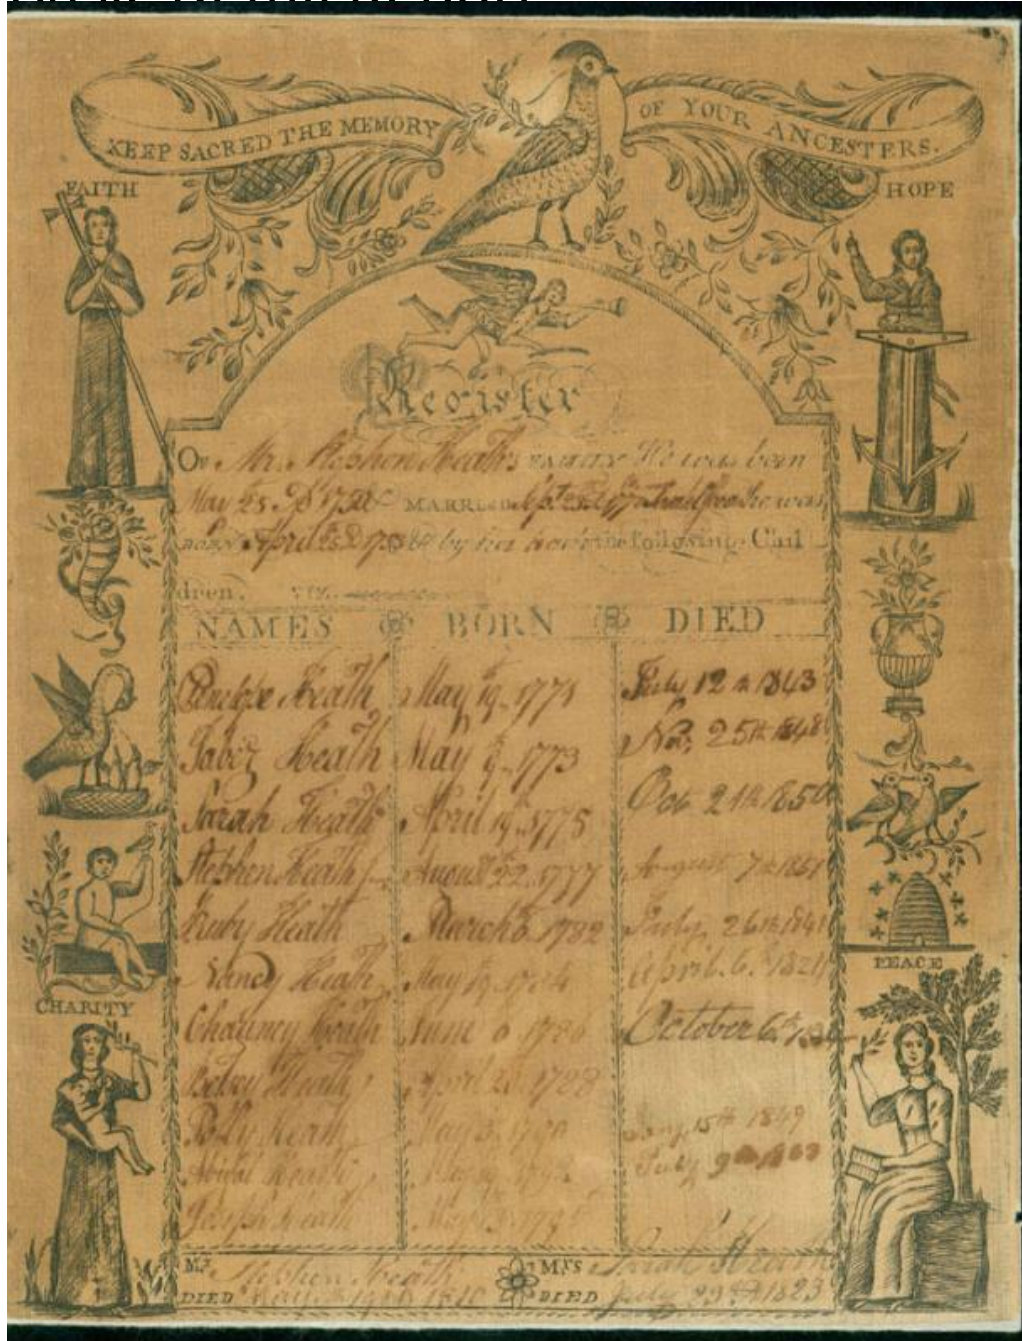 KEEP SACRED THE MEMORY OF YOUR ANCESTERS.
FAITH
HOPE
Register
Of Mr. Stephen Heath's FAMILY He was born
May 25 MARRIED she was
BORN April by her hav the following Chil
dren. VIZ.
NAMES BORN DIED
Penelope Heath May 19 1771 July 12th 1843
Jabez Heath May 1773 Nov. 25th 1848
Sarah Heath April 19 1775 Oct. 2 1850
Stephen Heath August 22 1777 August 7th 1851
Ruby Heath March 6 1782 July 26th 1841
Nancy Heath May 19 1784 April 6th 1821
Chauncy Heath June 6 1786 October 6th
Betsey Heath April 1788
Polly Heath May 1790 15th 1849
Abigal Heath May July 9th
Joseph Heath May
CHARITY
PEACE
Mr. Stephen Heath Mrs Sarah Heath
DIED May DIED July 29th 1823